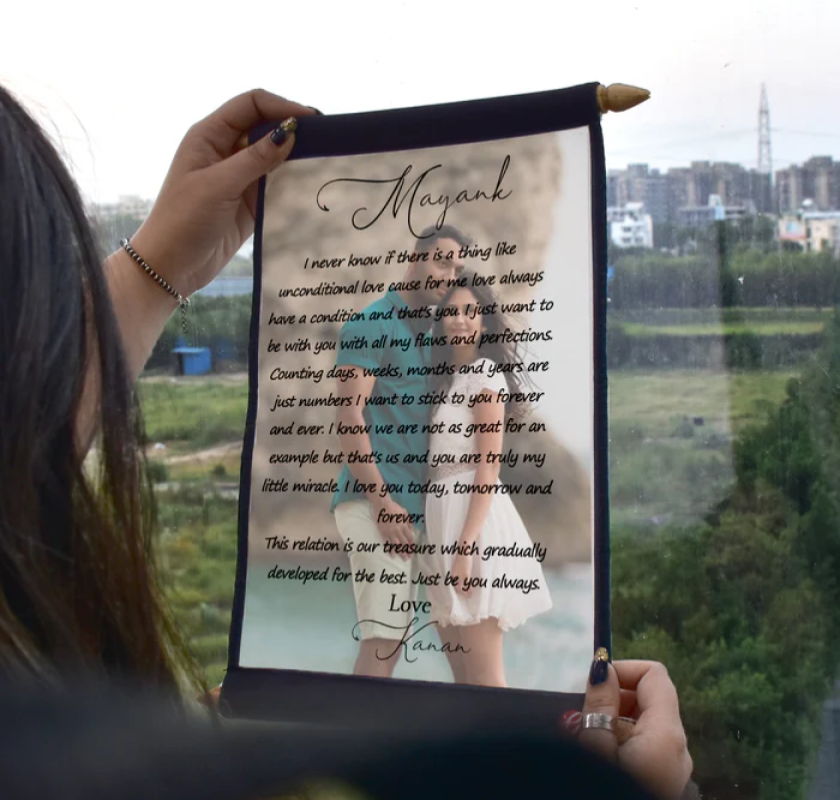 Mayank
I never know if there is a thing like
unconditional love cause for me love always
have a condition and that's you. I just want to
be with you with all my flaws and perfections.
Counting days, weeks, months and years are
just numbers I want to stick to you forever
and ever. I know we are not as great for an
example but that's us and you are truly my
little miracle. I love you today, tomorrow and
forever.
This relation is our treasure which gradually
developed for the best. Just be you always.
Love
Kanan